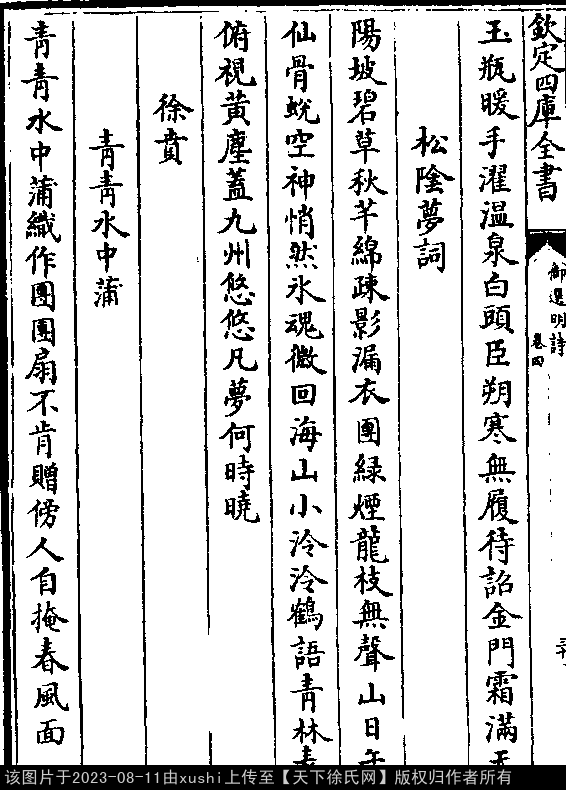 欽定四庫全書
御選明詩
卷四
玉瓶暖手濯溫泉白頭臣朔寒無履待詔金門霜滿
松陰夢詞
陽坡碧草秋芊綿疎影漏衣團綠煙龍枝無聲山日午
仙骨蛻空神悄然氷魂微回海山小泠泠鶴語青林
俯視黃塵蓋九州悠悠凡夢何時曉
徐賁
青青水中蒲
青青水中蒲織作團團扇不肯贈傍人自掩春風面
该图片于2023-08-11由xushi上传至【天下徐氏网】版权归作者所有